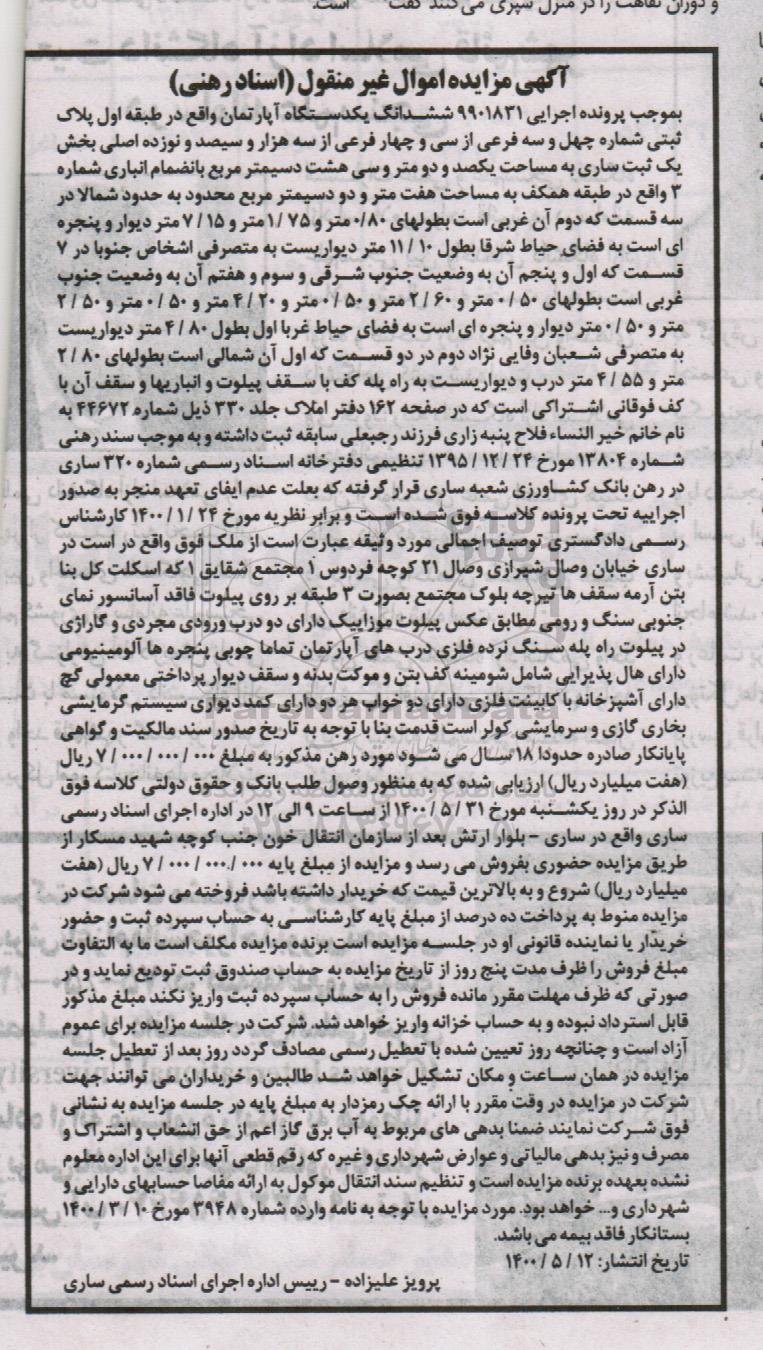 و دوران نقاهت را در منزل سپری می‌کنند گفت است.
آگهی مزایده اموال غیر منقول (اسناد رهنی)
بموجب پرونده اجرایی ۹۹۰۱۸۳۱ ششدانگ یکدستگاه آپارتمان واقع در طبقه اول پلاک
ثبتی شماره چهل و سه فرعی از سی و چهار فرعی از سه هزار و سیصد و نوزده اصلی بخش
یک ثبت ساری به مساحت یکصد و دو متر و سی هشت دسیمتر مربع بانضمام انباری شماره
۳ واقع در طبقه همکف به مساحت هفت متر و دو دسیمتر مربع محدود به حدود شمالا در
سه قسمت که دوم آن غربی است بطولهای ۰/۸۰ متر و ۱/۷۵ متر و ۷/۱۵ متر دیوار و پنجره
ای است به فضای حیاط شرقا بطول ۱۱/۱۰ متر دیواریست به متصرفی اشخاص جنوبا در ۷
قسمت که اول و پنجم آن به وضعیت جنوب شرقی و سوم و هفتم آن به وضعیت جنوب
غربی است بطولهای ۰/۵۰ متر و ۲/۶۰ متر و ۰/۵۰ متر و ۴/۲۰ متر و ۰/۵۰ متر و ۲/۵۰
متر و ۰/۵۰ متر دیوار و پنجره ای است به فضای حیاط غربا اول بطول ۴/۸۰ متر دیواریست
به متصرفی شعبان وفایی نژاد دوم در دو قسمت که اول آن شمالی است بطولهای ۲/۸۰
متر و ۴/۵۵ متر درب و دیواریست به راه پله کف با سقف پیلوت و انباریها و سقف آن با
کف فوقانی اشتراکی است که در صفحه ۱۶۲ دفتر املاک جلد ۳۳۰ ذیل شماره ۴۴۶۷۲ به
نام خانم خیر النساء فلاح پنبه زاری فرزند رجبعلی سابقه ثبت داشته و به موجب سند رهنی
شماره ۱۳۸۰۴ مورخ ۱۳۹۵/۱۲/۲۴ تنظیمی دفترخانه اسناد رسمی شماره ۳۲۰ ساری
در رهن بانک کشاورزی شعبه ساری قرار گرفته که بعلت عدم ایفای تعهد منجر به صدور
اجراییه تحت پرونده کلاسه فوق شده است و برابر نظریه مورخ ۱۴۰۰/۱/۲۴ کارشناس
رسمی دادگستری توصیف اجمالی مورد وثیقه عبارت است از ملک فوق واقع در است در
ساری خیابان وصال شیرازی وصال ۲۱ کوچه فردوس ۱ مجتمع شقایق ۱ که اسکلت کل بنا
بتن آرمه سقف ها تیرچه بلوک مجتمع بصورت ۳ طبقه بر روی پیلوت فاقد آسانسور نمای
جنوبی سنگ و رومی مطابق عکس پیلوت موزاییک دارای دو درب ورودی مجردی و گاراژی
در پیلوت راه پله سنگ نرده فلزی درب های آپارتمان تماما چوبی پنجره ها آلومینیومی
دارای هال پذیرایی شامل شومینه کف بتن و موکت بدنه و سقف دیوار پرداختی معمولی گچ
دارای آشپزخانه با کابینت فلزی دارای دو خواب هر دو دارای کمد دیواری سیستم گرمایشی
بخاری گازی و سرمایشی کولر است قدمت بنا با توجه به تاریخ صدور سند مالکیت و گواهی
پایانکار صادره حدودا ۱۸ سال می شود مورد رهن مذکور به مبلغ ۷/۰۰۰/۰۰۰/۰۰۰ ریال
(هفت میلیارد ریال) ارزیابی شده که به منظور وصول طلب بانک و حقوق دولتی کلاسه فوق
الذکر در روز یکشنبه مورخ ۱۴۰۰/۵/۳۱ از ساعت ۹ الی ۱۲ در اداره اجرای اسناد رسمی
ساری واقع در ساری - بلوار ارتش بعد از سازمان انتقال خون جنب کوچه شهید مسکار از
طریق مزایده حضوری بفروش می رسد و مزایده از مبلغ پایه ۷/۰۰۰/۰۰۰/۰۰۰ ریال (هفت
میلیارد ریال) شروع و به بالاترین قیمت که خریدار داشته باشد فروخته می شود شرکت در
مزایده منوط به پرداخت ده درصد از مبلغ پایه کارشناسی به حساب سپرده ثبت و حضور
خریدار یا نماینده قانونی او در جلسه مزایده است برنده مزایده مکلف است ما به التفاوت
مبلغ فروش را ظرف مدت پنج روز از تاریخ مزایده به حساب صندوق ثبت تودیع نماید و در
صورتی که ظرف مهلت مقرر مانده فروش را به حساب سپرده ثبت واریز نکند مبلغ مذکور
قابل استرداد نبوده و به حساب خزانه واریز خواهد شد. شرکت در جلسه مزایده برای عموم
آزاد است و چنانچه روز تعیین شده با تعطیل رسمی مصادف گردد روز بعد از تعطیل جلسه
مزایده در همان ساعت و مکان تشکیل خواهد شد طالبین و خریداران می توانند جهت
شرکت در مزایده در وقت مقرر با ارائه چک رمزدار به مبلغ پایه در جلسه مزایده به نشانی
فوق شرکت نمایند ضمنا بدهی های مربوط به آب برق گاز اعم از حق انشعاب و اشتراک و
مصرف و نیز بدهی مالیاتی و عوارض شهرداری و غیره که رقم قطعی آنها برای این اداره معلوم
نشده بعهده برنده مزایده است و تنظیم سند انتقال موکول به ارائه مفاصا حسابهای دارایی و
شهرداری و... خواهد بود. مورد مزایده با توجه به نامه وارده شماره ۳۹۴۸ مورخ ۱۴۰۰/۳/۱۰
بستانکار فاقد بیمه می باشد.
تاریخ انتشار: ۱۴۰۰/۵/۱۲
پرویز علیزاده - رییس اداره اجرای اسناد رسمی ساری